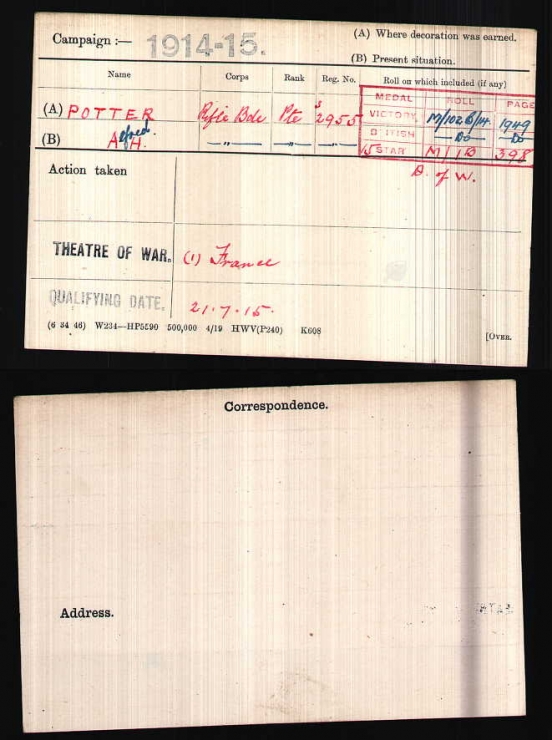 Campaign :— 1914-15.
(A) Where decoration was earned.
(B) Present situation.
Name Corps Rank Reg. No. Roll on which included (if any)
MEDAL ROLL PAGE
(A) POTTER Rifle Bde Pte S 2955 VICTORY M/102B/14. 1949
(B) Alfred H. —„— —„— —„— BRITISH —Do— Do
15 STAR M/1B 398
Action taken
D. of W.
THEATRE OF WAR. (1) France
QUALIFYING DATE. 21.7.15.
(6 34 46) W234—HP5590 500,000 4/19 HWV(P240) K608 [OVER.
Correspondence.
Address.